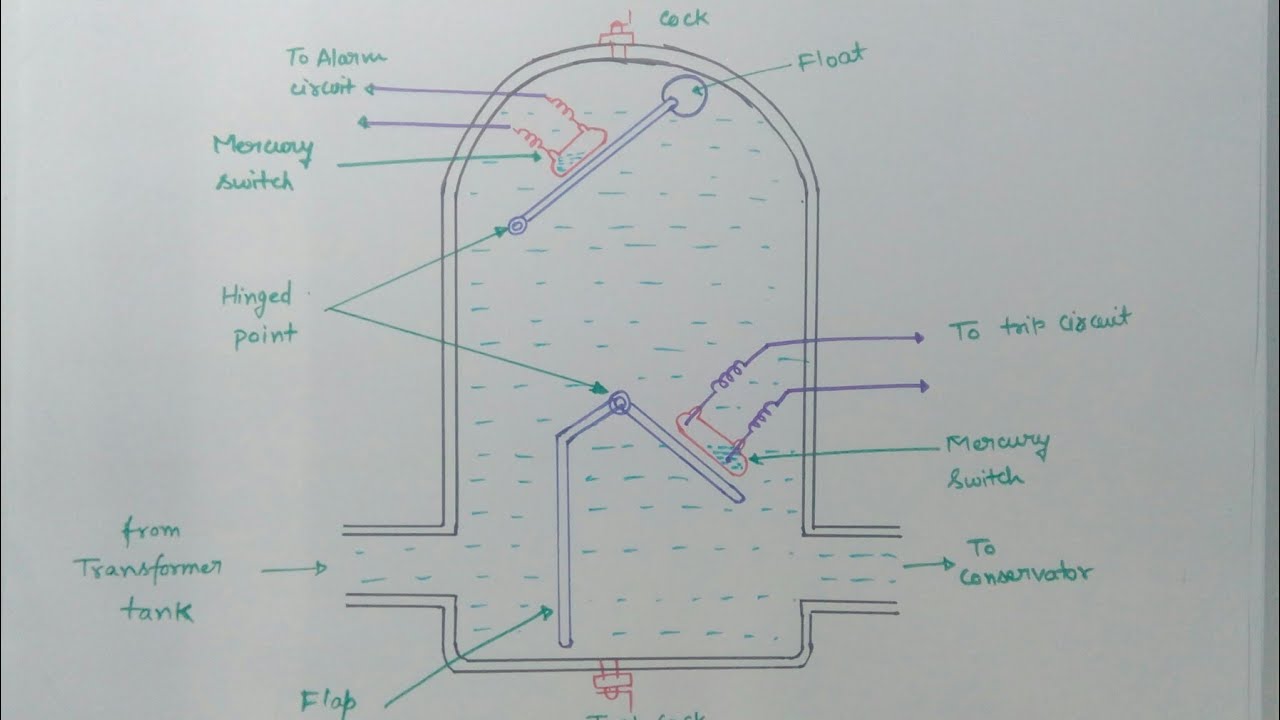 cock
To Alarm
circuit
Float
Mercury
switch
Hinged
point
To trip circuit
Mercury
switch
from
Transformer
tank
To
conservator
Flap
cock